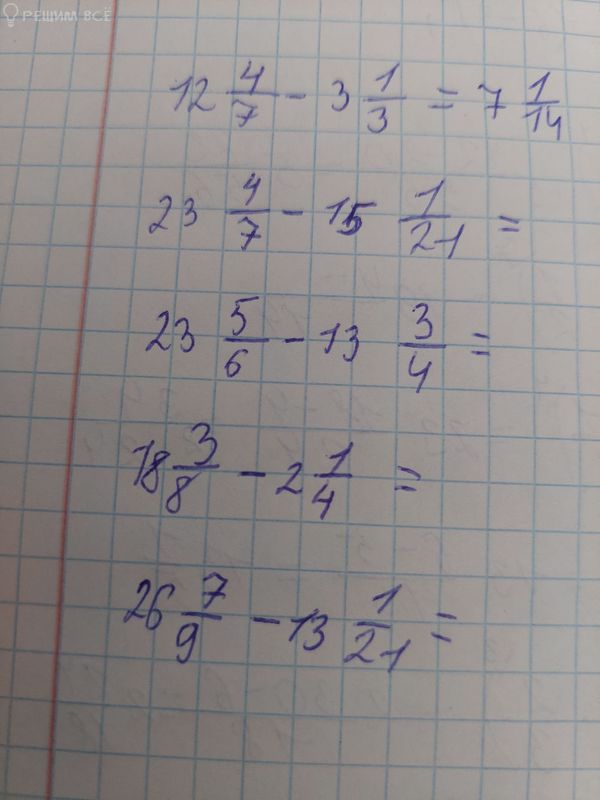 РЕШИМ ВСЁ
12 4/7 - 3 1/3 = 7 1/14
23 4/7 - 15 1/21 =
23 5/6 - 13 3/4 =
18 3/8 - 2 1/4 =
26 7/9 - 13 1/21 =